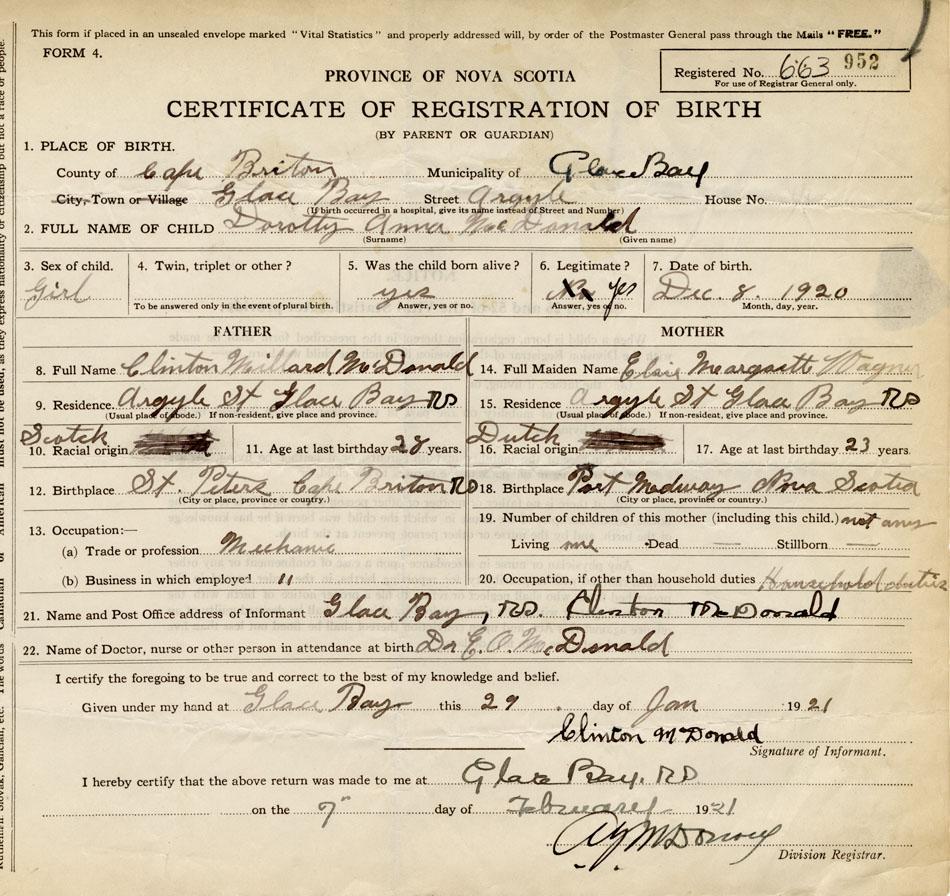 This form if placed in an unsealed envelope marked "Vital Statistics" and properly addressed will, by order of the Postmaster General pass through the Mails "FREE."
FORM 4.
Registered No. 663 952
For use of Registrar General only.
PROVINCE OF NOVA SCOTIA
CERTIFICATE OF REGISTRATION OF BIRTH
(BY PARENT OR GUARDIAN)
1. PLACE OF BIRTH.
County of Cape Briton Municipality of Glace Bay
City, Town or Village Glace Bay Street Argyle House No.
(If birth occurred in a hospital, give its name instead of Street and Number)
2. FULL NAME OF CHILD Dorothy Anna MacDonald
(Surname) (Given name)
3. Sex of child. 4. Twin, triplet or other? 5. Was the child born alive? 6. Legitimate? 7. Date of birth.
Girl yes No yes Dec. 8. 1920
To be answered only in the event of plural birth. Answer, yes or no. Answer, yes or no. Month, day, year.
FATHER MOTHER
8. Full Name Clinton Millard McDonald 14. Full Maiden Name Elsie Meargartte Wagner
9. Residence Argyle St Glace Bay NS 15. Residence Argyle St Glace Bay NS
(Usual place of abode.) If non-resident, give place and province. (Usual place of abode.) If non-resident, give place and province.
Scotch Dutch
10. Racial origin 11. Age at last birthday 28 years. 16. Racial origin 17. Age at last birthday 23 years.
12. Birthplace St. Peters Cape Briton NS 18. Birthplace Port Medway Nova Scotia
(City or place, province or country.) (City or place, province or country.)
13. Occupation:— 19. Number of children of this mother (including this child.) not any
(a) Trade or profession Mechanic Living one Dead — Stillborn —
(b) Business in which employed " 20. Occupation, if other than household duties Household duties
21. Name and Post Office address of Informant Glace Bay, NS. Clinton McDonald
22. Name of Doctor, nurse or other person in attendance at birth Dr E. O. McDonald
I certify the foregoing to be true and correct to the best of my knowledge and belief.
Given under my hand at Glace Bay this 29 day of Jan 1921
Clinton McDonald
Signature of Informant.
I hereby certify that the above return was made to me at Glace Bay. NS
on the 7" day of February 1921
Division Registrar.